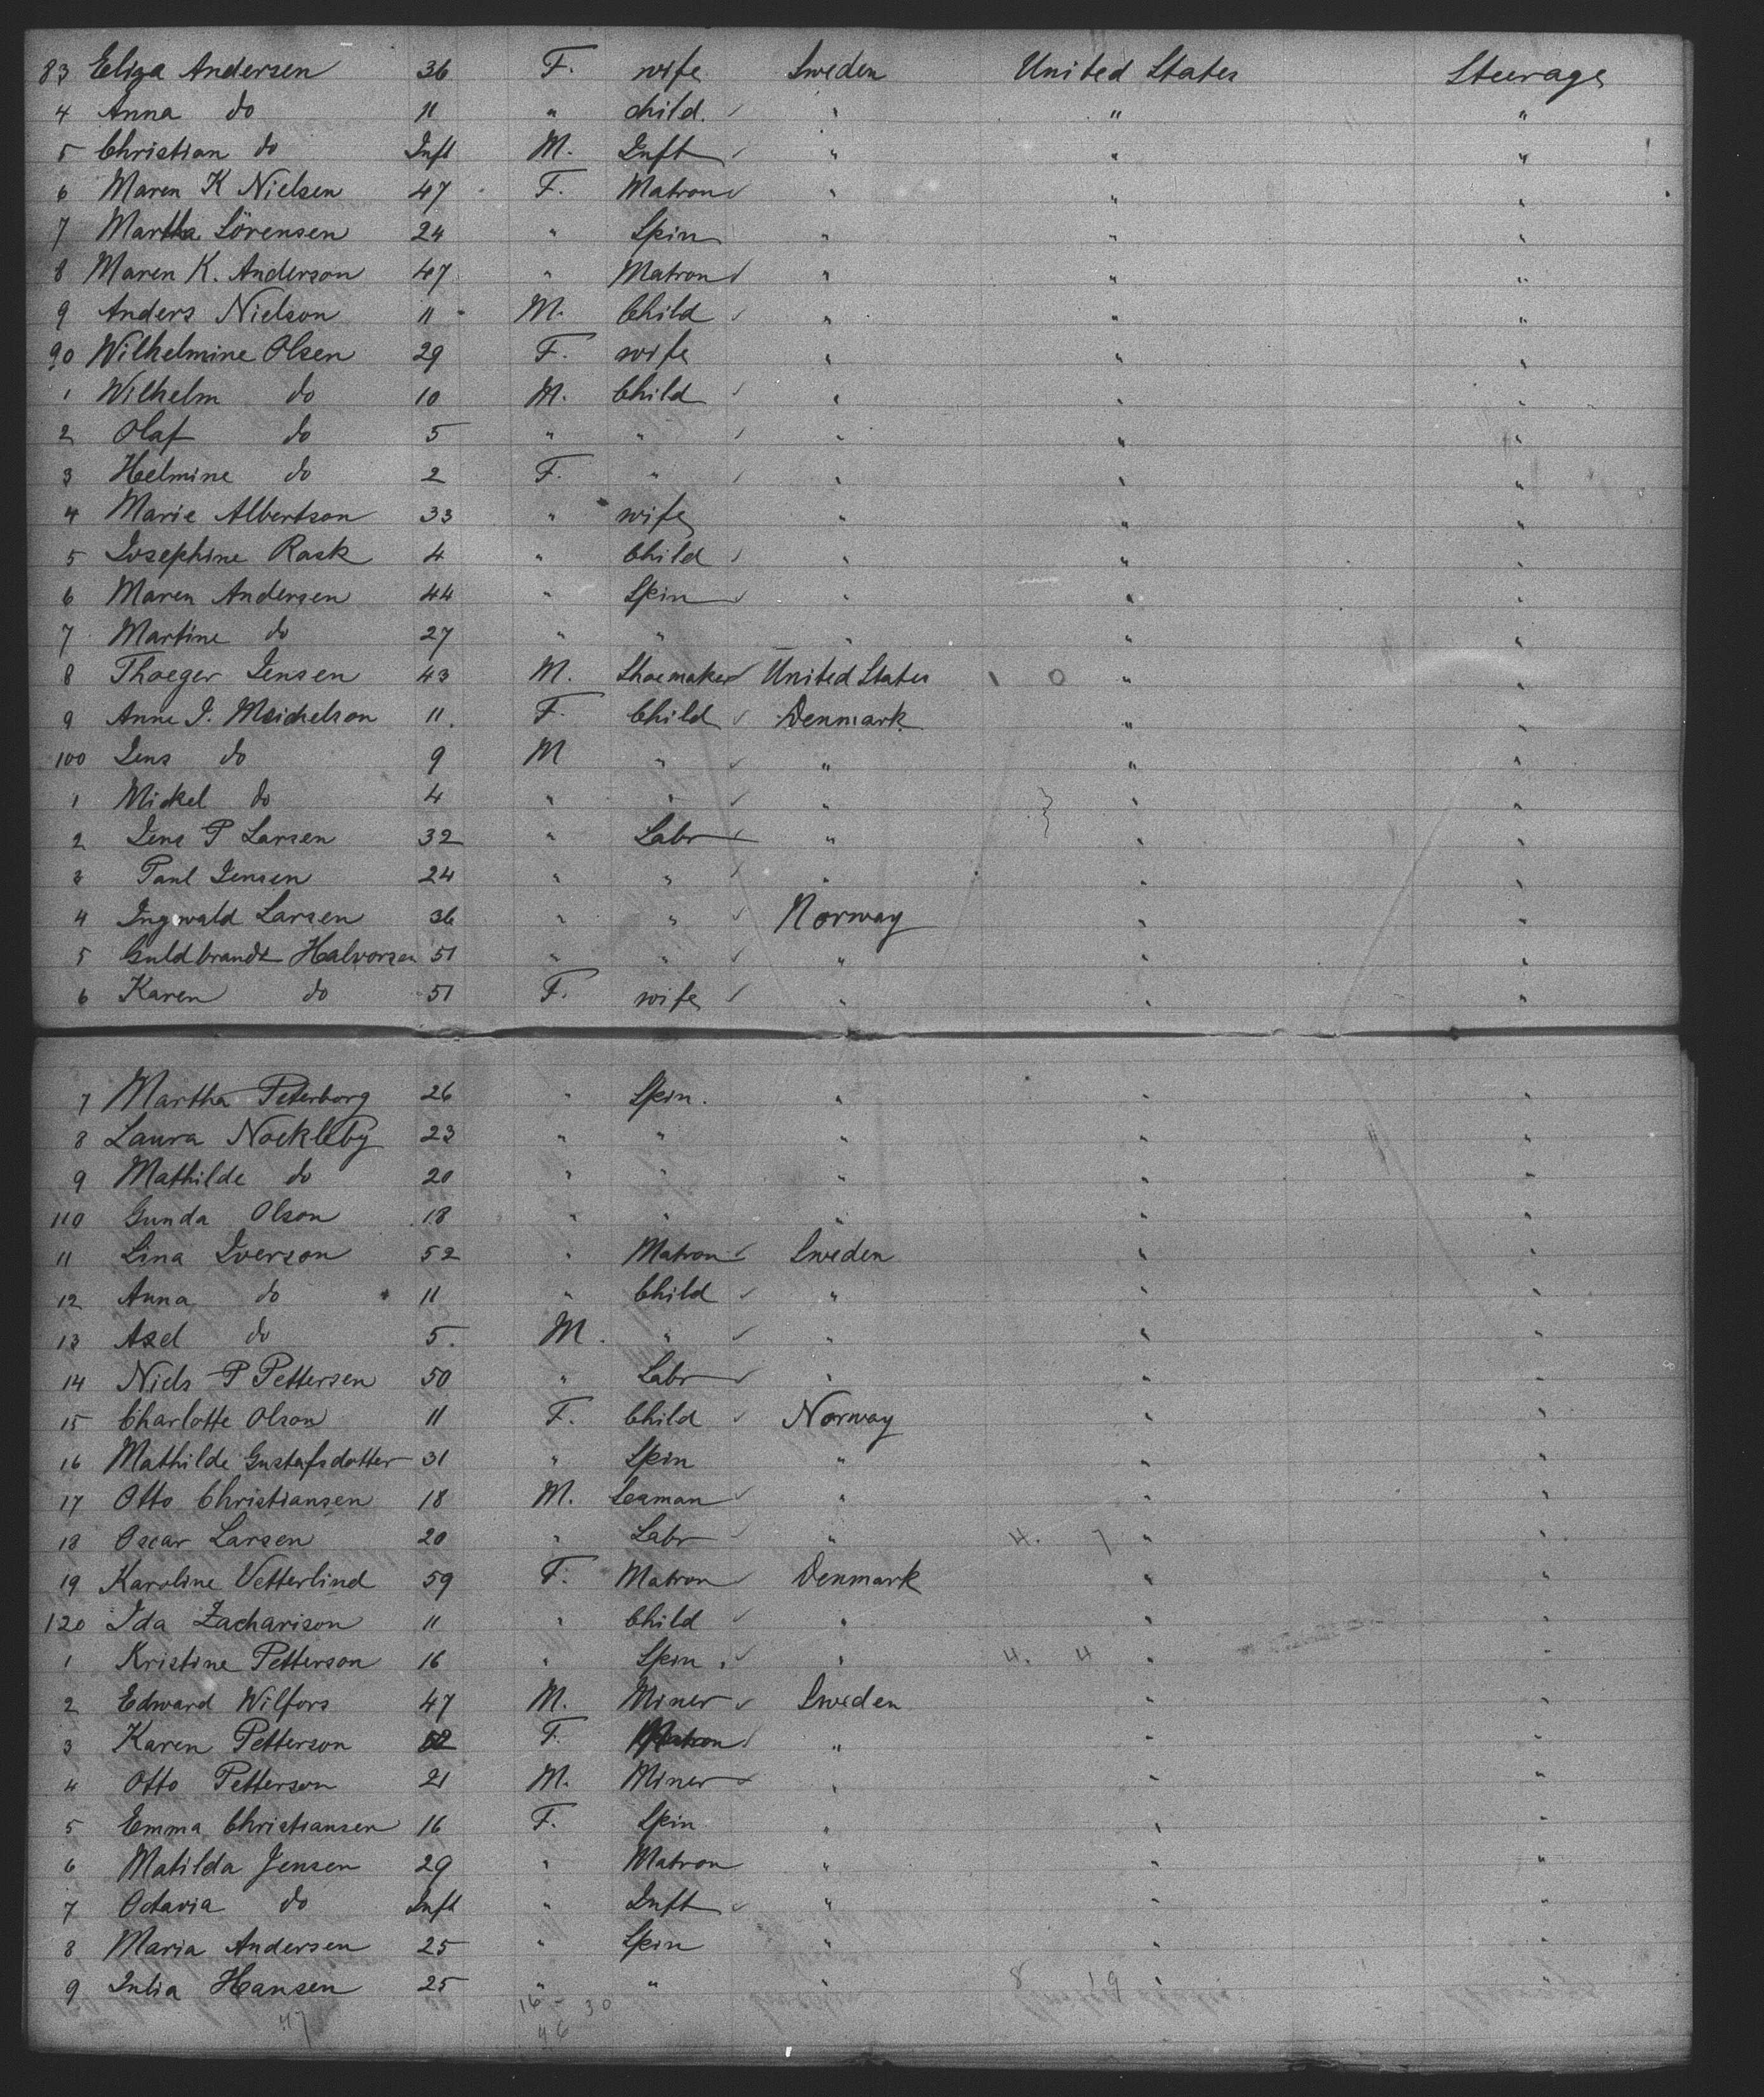 83 Eliza Andersen 36 F. wife Sweden United States Steerage
4 Anna do 11 " child. " " "
5 Christian do Inft M. Inft " " "
6 Maren K Nielsen 47 F. Matron " " "
7 Martha Sörensen 24 " Spin " " "
8 Maren K. Anderson 47 " Matron " " "
9 Anders Nielson 11 M. Child " " "
90 Wilhelmine Olsen 29 F. wife " " "
1 Wilhelm do 10 M. Child " " "
2 Olaf do 5 " " " " "
3 Helmine do 2 F. " " " "
4 Marie Albertson 33 " wife " " "
5 Josephine Rask 4 " Child " " "
6 Maren Andersen 44 " Spin " " "
7 Martine do 27 " " " " "
8 Thoeger Jensen 43 M. Shoemaker United States 0 " "
9 Anne J. Meichelson 11. F. Child Denmark " "
100 Jens do 9 M " " " "
1 Mickel do 4 " " " " "
2 Jens P Larsen 32 " Labr " " "
3 Paul Jensen 24 " " " " "
4 Ingwald Larsen 36 " " Norway " "
5 Guldbrandt Halvorsen 51 " " " " "
6 Karen do 51 F. wife " " "
7 Martha Peterborg 26 " Spin. " " "
8 Laura Nockleby 23 " " " " "
9 Mathilde do 20 " " " " "
110 Gunda Olson 18 " " " " "
11 Lina Iverson 52 " Matron Sweden " "
12 Anna do 11 " Child " " "
13 Axel do 5. M. " " " "
14 Niels P Pettersen 50 " Labr " " "
15 Charlotte Olson 11 F. Child Norway " "
16 Mathilde Gustafsdotter 31 " Spin " " "
17 Otto Christiansen 18 M. Seaman " " "
18 Oscar Larsen 20 " Labr " 4. 7 " "
19 Karoline Vetterlind 59 F. Matron Denmark " "
120 Ida Zacharison 11 " Child " " "
1 Kristine Petterson 16 " Spin. " 4. 4 " "
2 Edward Wilfors 47 M. Miner Sweden " "
3 Karen Petterson F. Matron " " "
4 Otto Petterson 21 M. Miner " " "
5 Emma Christiansen 16 F. Spin " " "
6 Matilda Jensen 29 " Matron " " "
7 Octavia do Inft " Inft " " "
8 Maria Andersen 25 " Spin " " "
9 Julia Hansen 25 " " " 8 19 " "
47 16 - 30
46